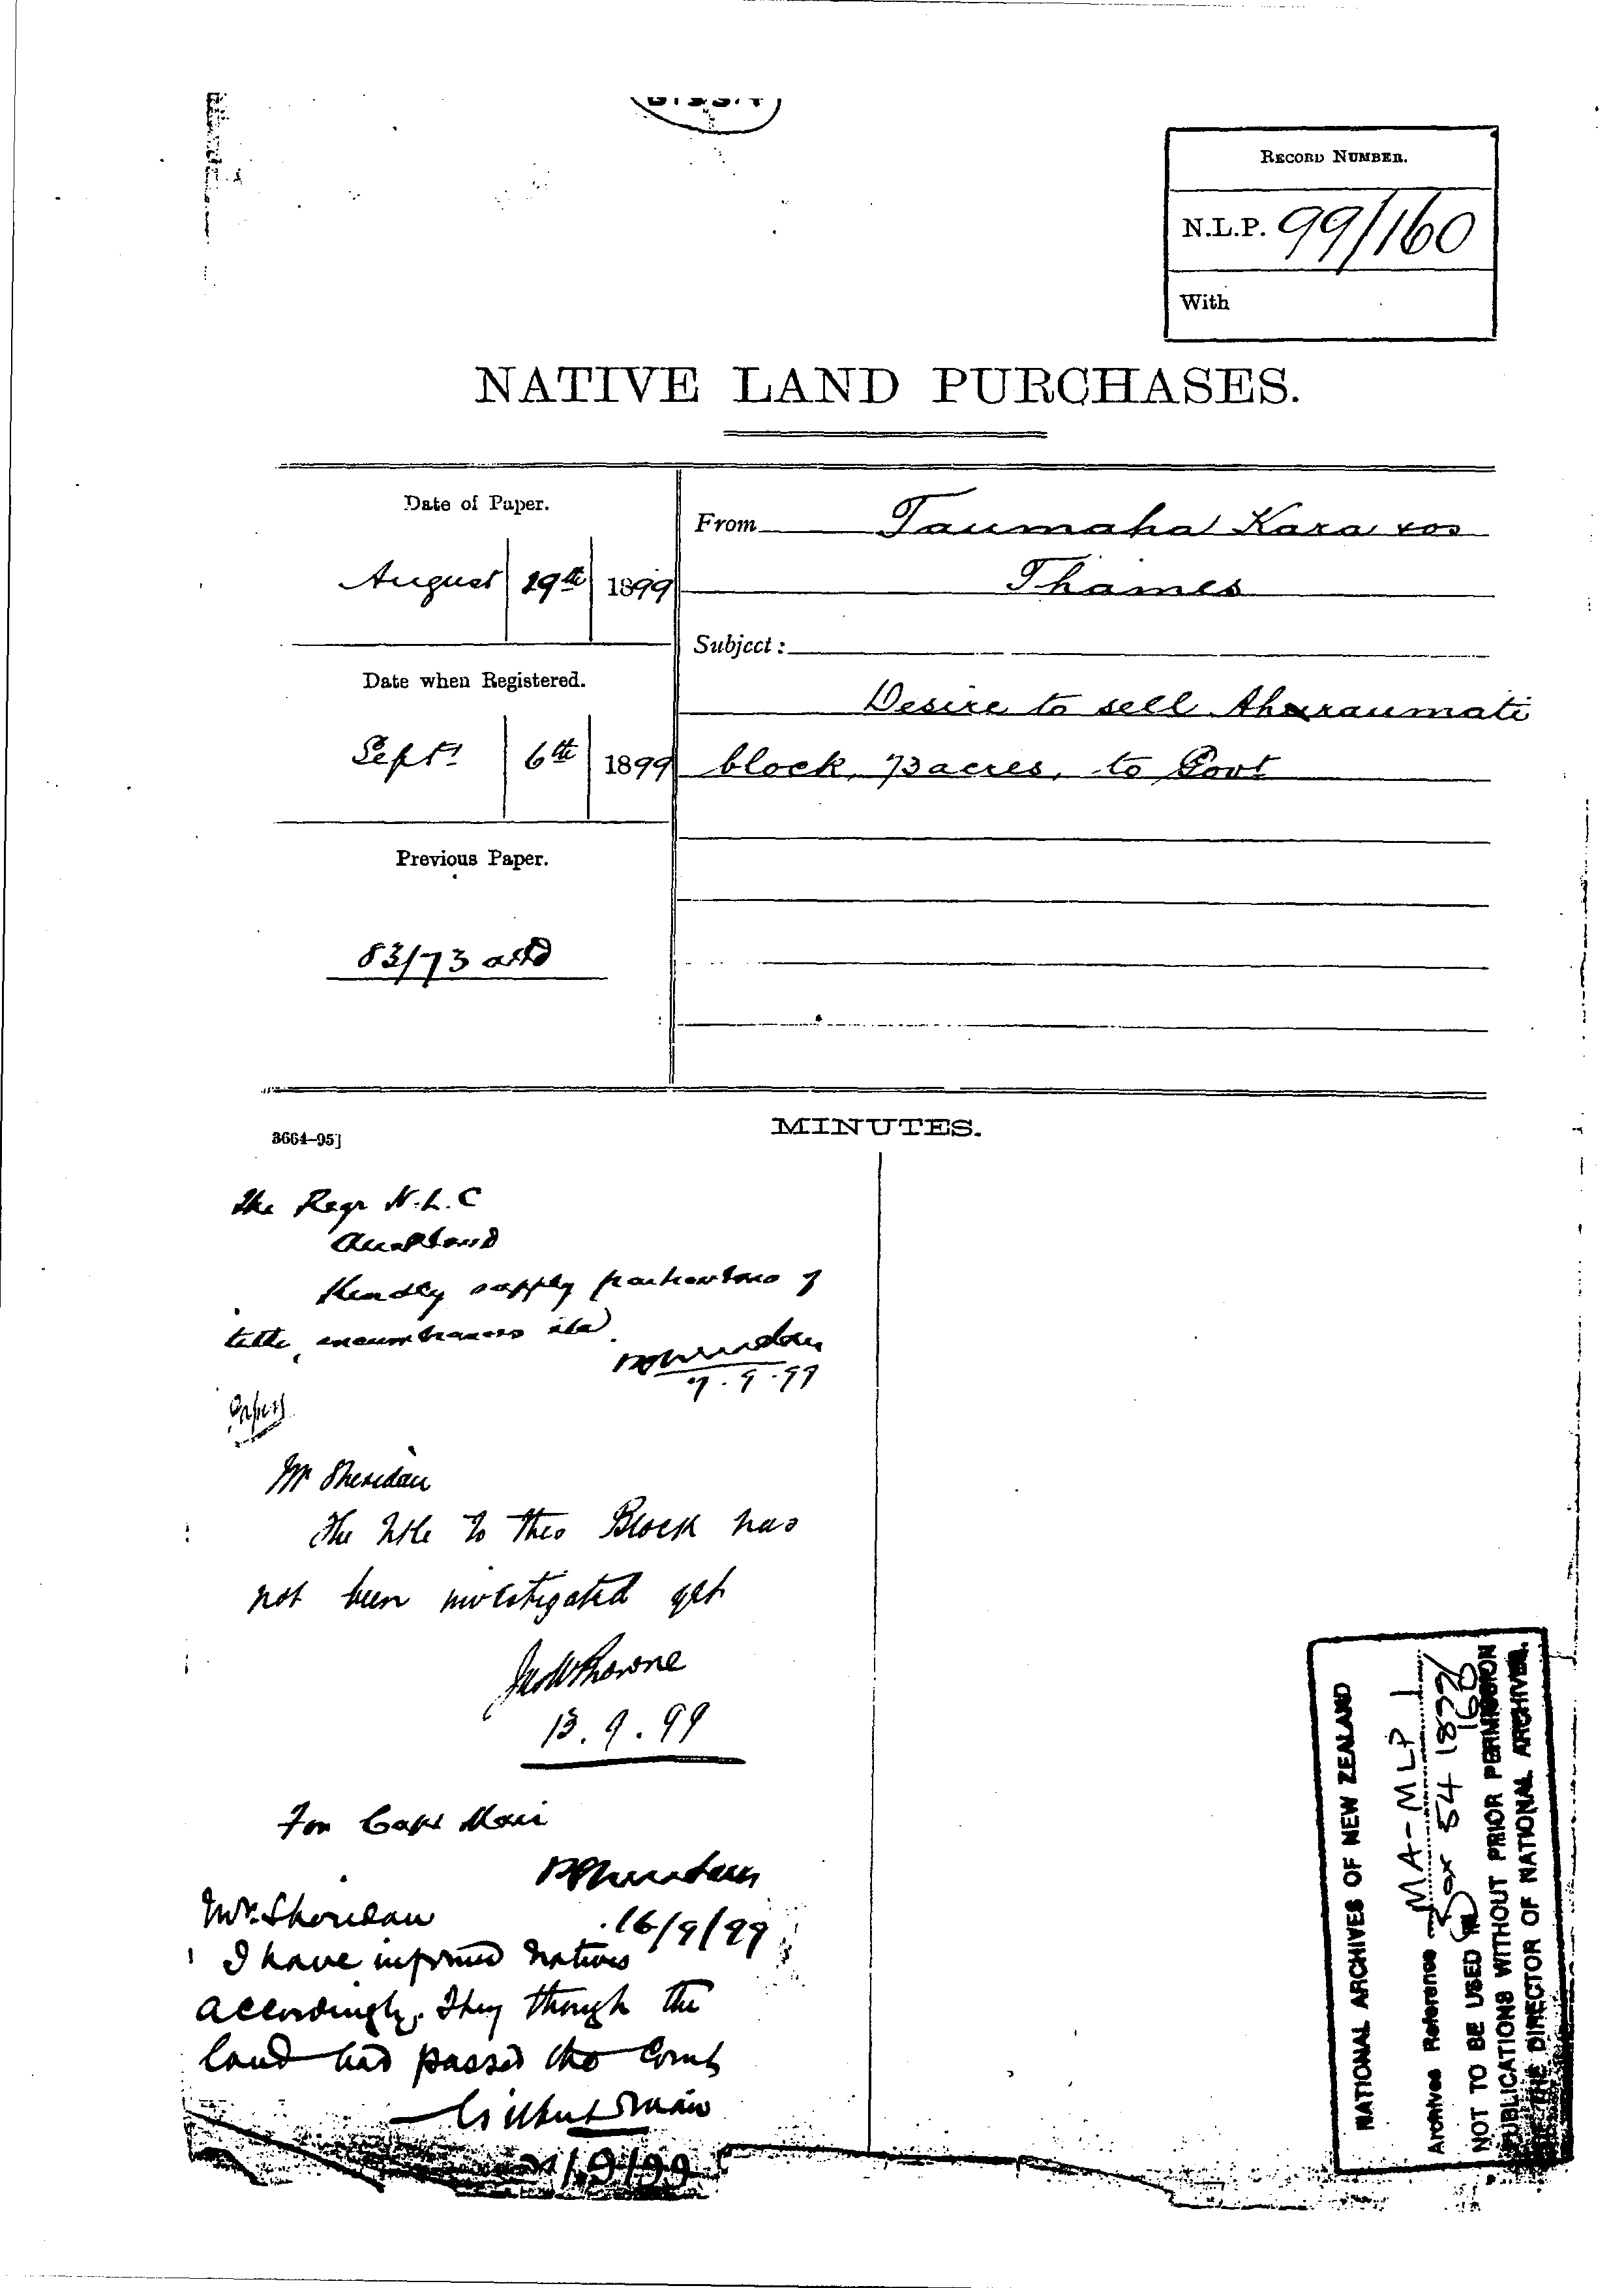 RECORD NUMBER.
N.L.P. 99/160
With
NATIVE LAND PURCHASES.
Date of Paper.
August 29th 1899
Date when Registered.
Septr 6th 1899
Previous Paper.
83/73
From Taumaha Kara
Thames
Subject:
Desire to sell Ahuraumati
block, 73 acres, to Govt
3664–95]
MINUTES.
The Regr N.L.C
Auckland
Kindly supply particulars of
title, encumbrances
7.9.99
Mr Sheridan
The title to this Block has
not been investigated yet
13.9.99
For Capt Mair
16/9/99
Mr. Sheridan
I have informed Natives
accordingly. They though the
land had passed the Court
Gilbert Mair
21/9/99
NATIONAL ARCHIVES OF NEW ZEALAND
Archives Reference MA-MLP 1
Box 54 1899/
160
NOT TO BE USED IN
PUBLICATIONS WITHOUT PRIOR PERMISSION
THE DIRECTOR OF NATIONAL ARCHIVES.